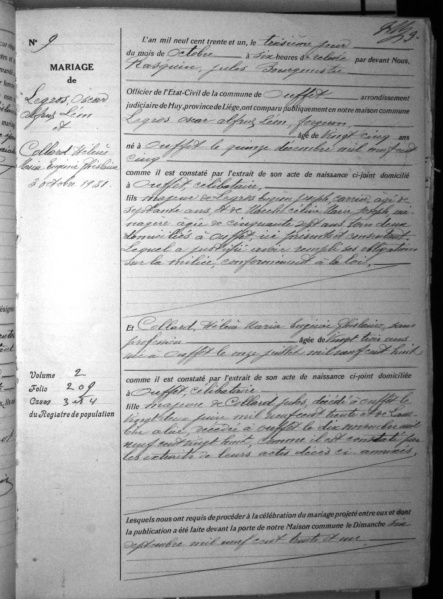 N° 9
MARIAGE
de
Legros, Oscar
Alfred Léon
et
Collard, Hélène
Maria Eugénie Ghislaine
3 octobre 1931.
Volume 2
Folio 209
Cases 3 et 4
du Registre de population
L'an mil neuf cent trente et un, le troisième jour
du mois de octobre à six heures de relevée par devant Nous,
Jules Bourgmestre
Officier de l'Etat-Civil de la commune de Ouffet arrondissement
judiciaire de Huy, province de Liége, ont comparu publiquement en notre maison commune
Legros Oscar Alfred Léon, forgeron,
âgé de vingt cinq ans
né à Ouffet le quinze décembre mil neuf cent
cinq
comme il est constaté par l'extrait de son acte de naissance ci-joint domicilié
à Ouffet, célibataire,
fils majeur de Legros Joseph, âgé de
septante ans, et de Marie Joseph, mé-
nagère âgée de cinquante sept ans tous deux
domiciliés à Ouffet ici présents et consentant.
Lequel a justifié avoir rempli ses obligations
sur la milice, conformément à la loi.
Et Collard, Hélène Maria Eugénie Ghislaine, sans
profession âgée de vingt trois ans
née à Ouffet le onze juillet mil neuf cent huit
comme il est constaté par l'extrait de son acte de naissance ci-jointe domiciliée
à Ouffet, célibataire
fille majeure de Collard Jules, décédé à Ouffet le
vingt deux juin mil neuf cent trente et de
décédée à Ouffet le dix novembre mil
neuf cent vingt huit, comme il est constaté par
les extraits de leurs actes de décès ci-annexés,
Lesquels nous ont requis de procéder à la célébration du mariage projeté entre eux et dont
la publication a été faite devant la porte de notre Maison commune le Dimanche
septembre mil neuf cent trente et un.